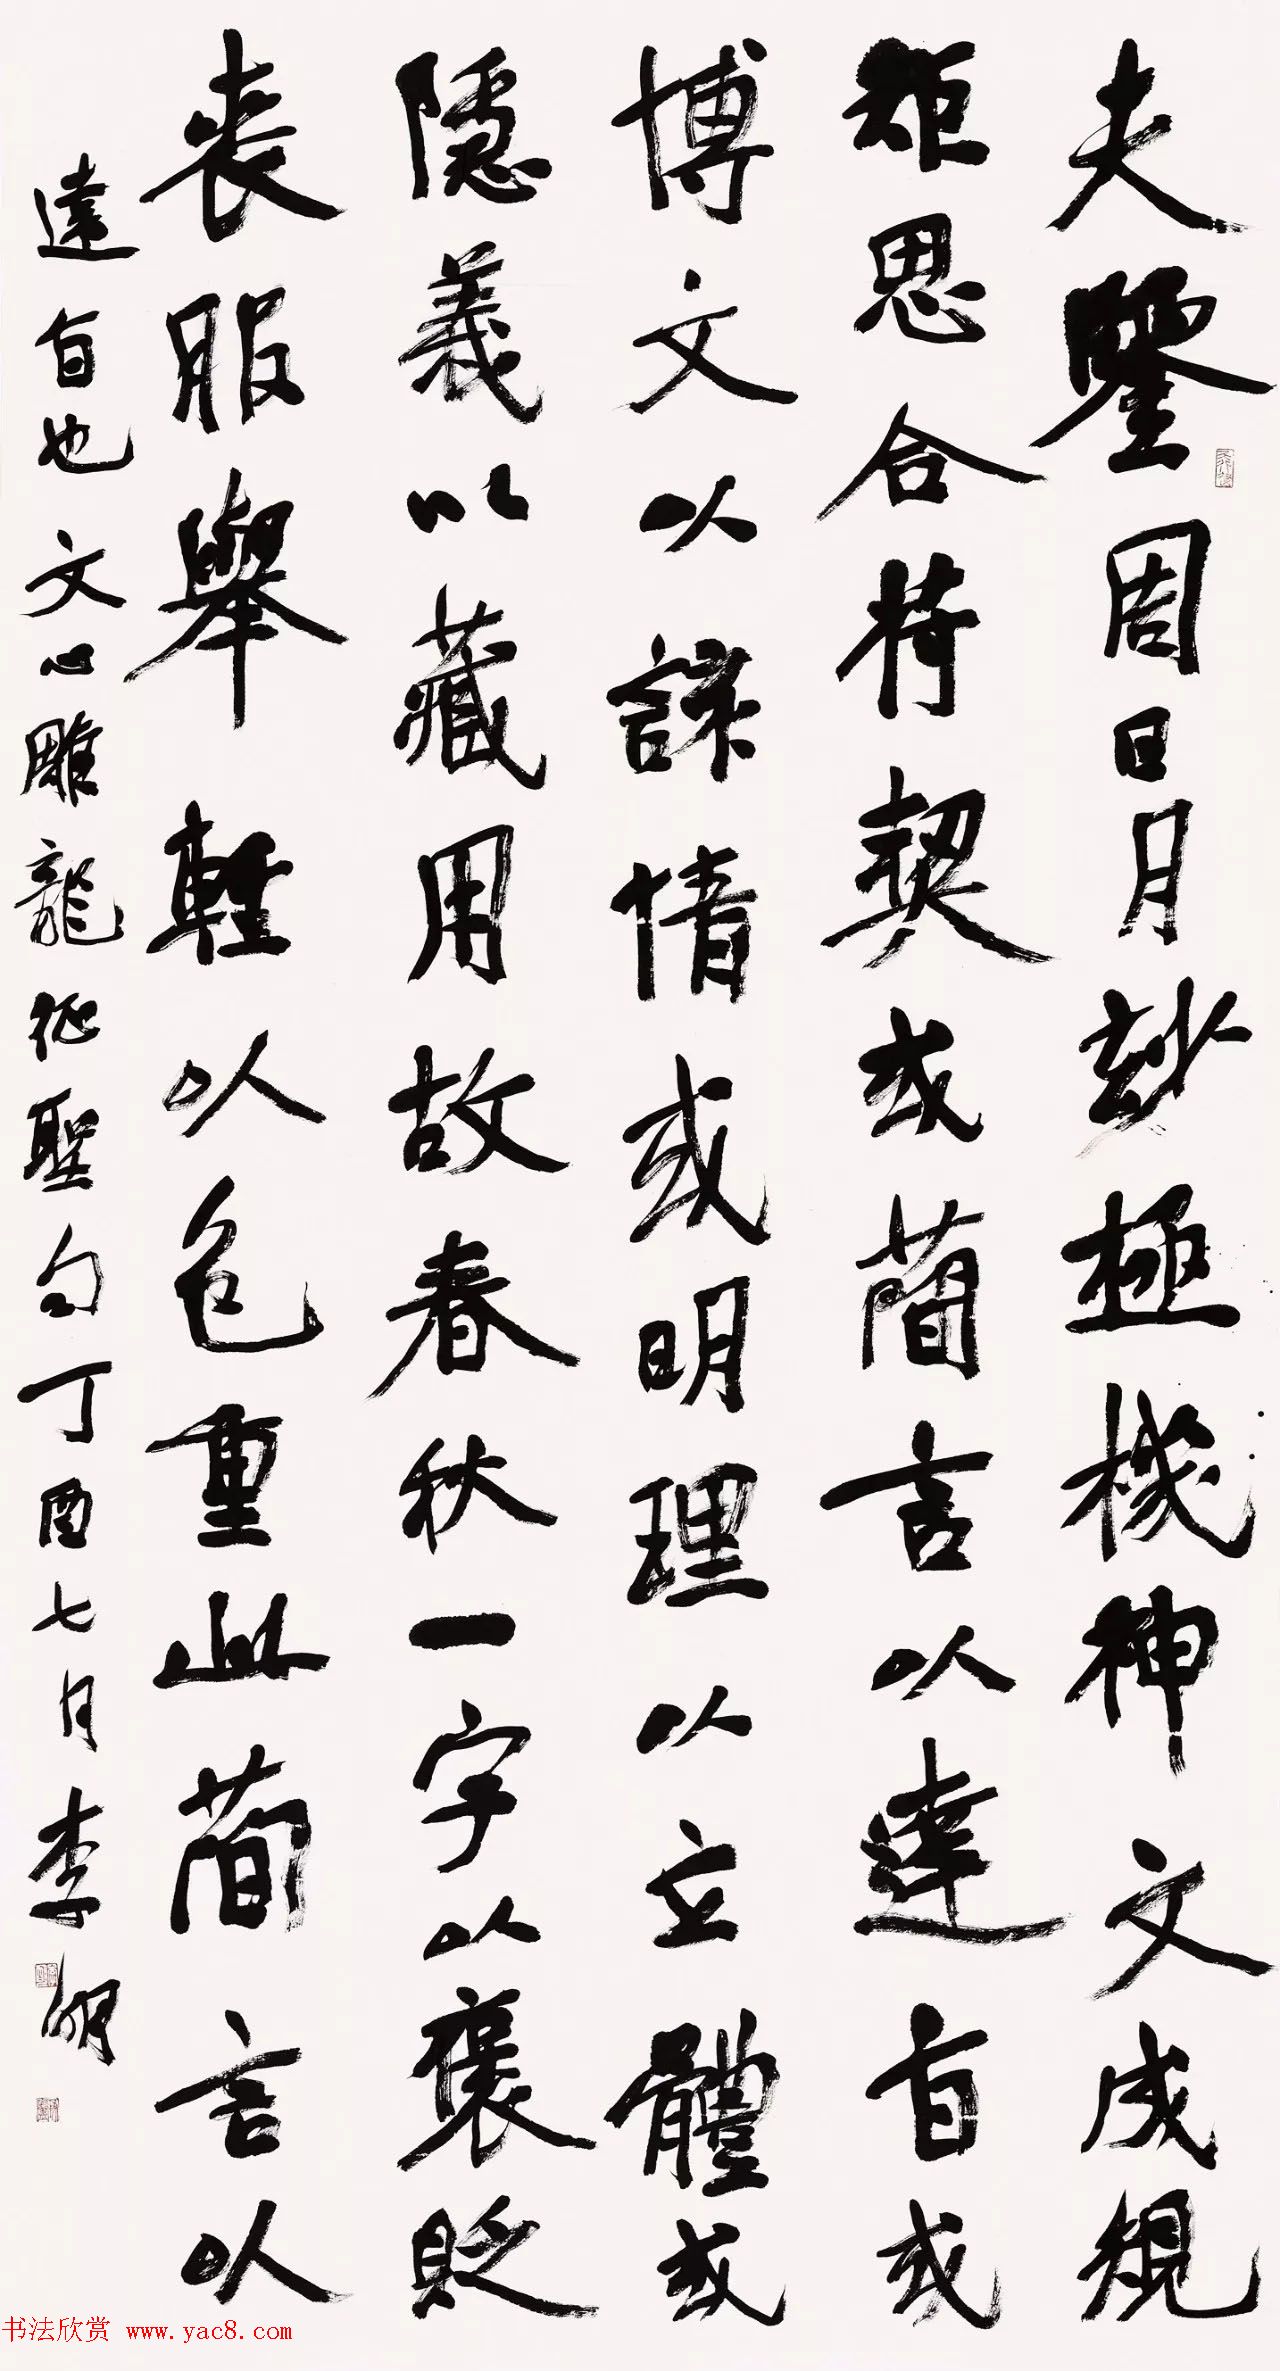 夫鑒周日月妙極機神文成規
矩思合符契或簡言以達旨或
博文以該情或明理以立體或
隱義以藏用故春秋一字以褒貶
喪服舉輕以包重此簡言以
達旨也 文心雕龍征聖句丁酉七月李明
书法欣赏 www.yac8.com